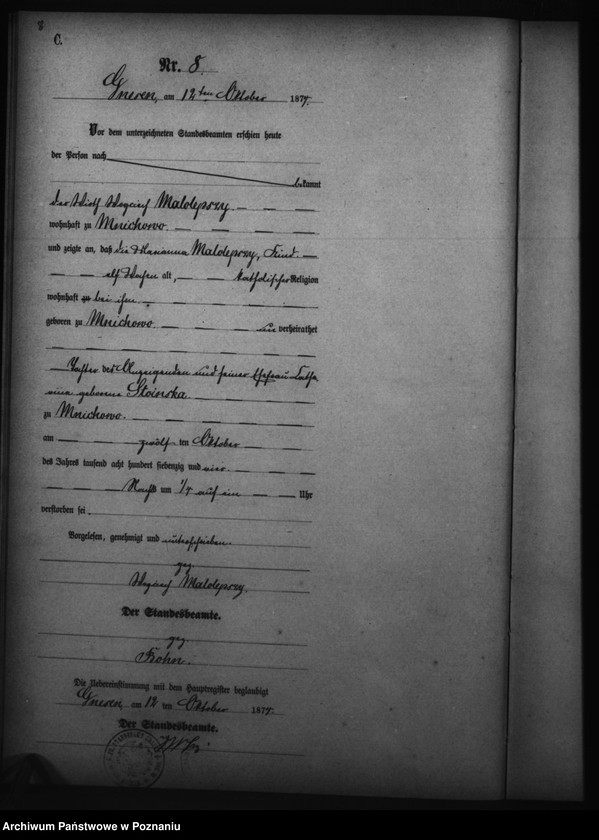 8
C.
Nr. 8.
Gneven, am 12ten Oktober 1877.
Vor dem unterzeichneten Standesbeamten erschien heute
der Person nach
bekannt
der Wirth Maloleprzy
wohnhaft zu Mnichowo.
und zeigte an, daß die Marianna Maloleprzy, Kind
elf Wochen alt, katholischer Religion
wohnhaft zu bei ihm
geboren zu Mnichowo unverheirathet
Tochter des Anzeigenden und seiner Ehefrau
geborene
zu Mnichowo.
am zwölf ten Oktober
des Jahres tausend acht hundert siebenzig und vier
Nachts um 1/4 auf ein Uhr
verstorben sei.
Vorgelesen, genehmigt und unterschrieben
gez
Maloleprzy.
Der Standesbeamte.
gez
Die Uebereinstimmung mit dem Hauptregister beglaubigt
Gneven, am 12 ten Oktober 1877.
Der Standesbeamte.
Archiwum Państwowe w Poznaniu